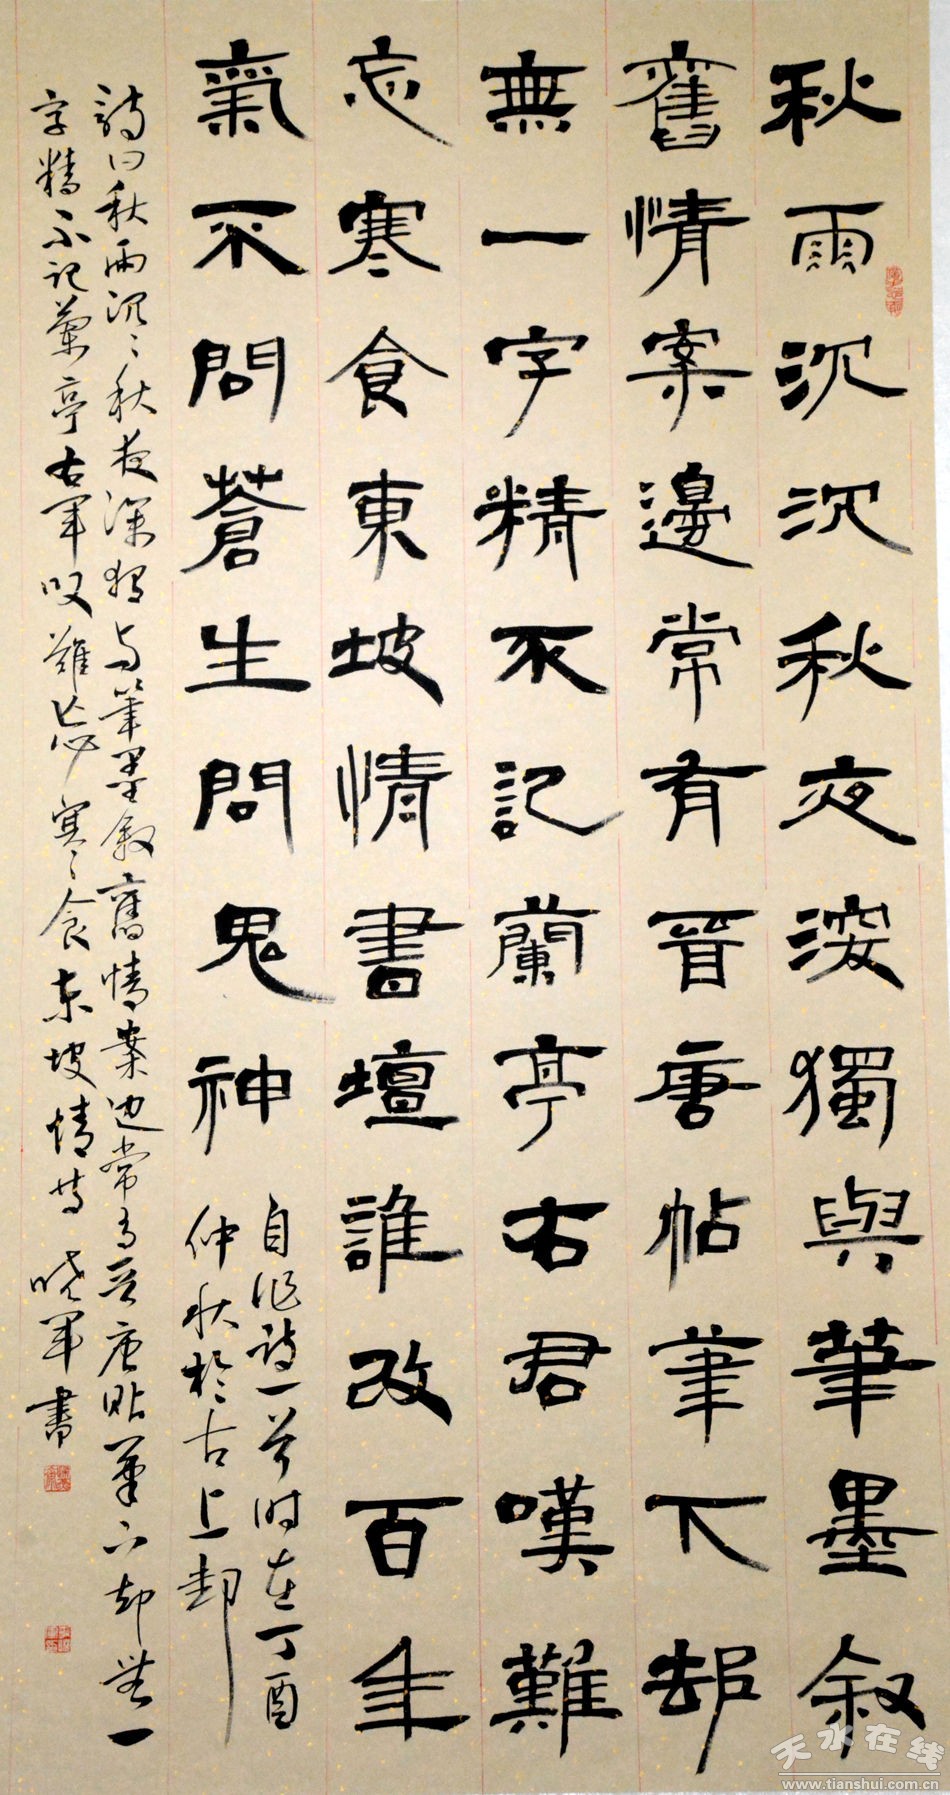 秋雨沉沉秋夜深獨與筆墨敘
舊情案邊常有晉唐帖筆下却
無一字精不記蘭亭右軍嘆難
忘寒食東坡情書壇誰改百年
氣不問蒼生問鬼神
自作詩一首时在丁酉
仲秋於古上邽
詩曰秋雨沉沉秋夜深獨与筆墨敘舊情案边常有晋唐帖筆下却無一
字精不記蘭亭右軍叹難忘寒食东坡情等曉軍書
天水在线
www.tianshui.com.cn